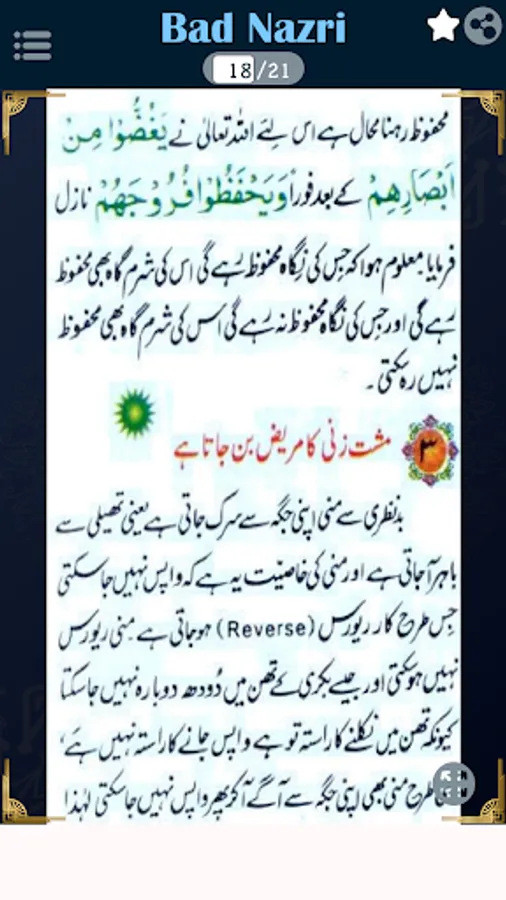 Bad Nazri
18/21
محفوظ رہنا محال ہے اس لئے اللہ تعالیٰ نے يَغُضُّوْا مِنْ
اَبْصَارِهِمْ کے بعد فوراً وَيَحْفَظُوْا فُرُوْجَهُمْ نازل
فرمایا۔ معلوم ہوا کہ جس کی نگاہ محفوظ رہے گی اس کی شرم گاہ بھی محفوظ
رہے گی اور جس کی نگاہ محفوظ نہ رہے گی اس کی شرم گاہ بھی محفوظ
نہیں رہ سکتی۔
۳ مشت زنی کا مریض بن جاتا ہے
بدنظری سے منی اپنی جگہ سے سرک جاتی ہے یعنی تھیلی سے
باہر آجاتی ہے اور منی کی خاصیت یہ ہے کہ واپس نہیں جاسکتی
جس طرح کار ریورس (Reverse) ہوجاتی ہے منی ریورس
نہیں ہوسکتی اور جیسے بکری کے تھن میں دُودھ دوبارہ نہیں جاسکتا
کیونکہ تھن میں نکلنے کا راستہ تو ہے واپس جانے کا راستہ نہیں ہے،
طرح منی بھی اپنی جگہ سے آگے آکر پھر واپس نہیں جاسکتی لہٰذا